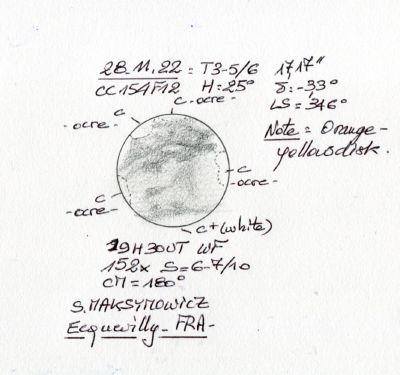 28.11.22 = T3-5/6 17,17"
CC 154F12 H=25° δ=-33°
LS=346°
C
C-ocre-
-ocre-
Note = Orange-
yellow disk.
C
-ocre-
C
-ocre-
C+(white)
19H30UT WF
152x S=6-7/10
CM=180°
S.MAKSYMOWICZ
Ecquevilly-FRA-